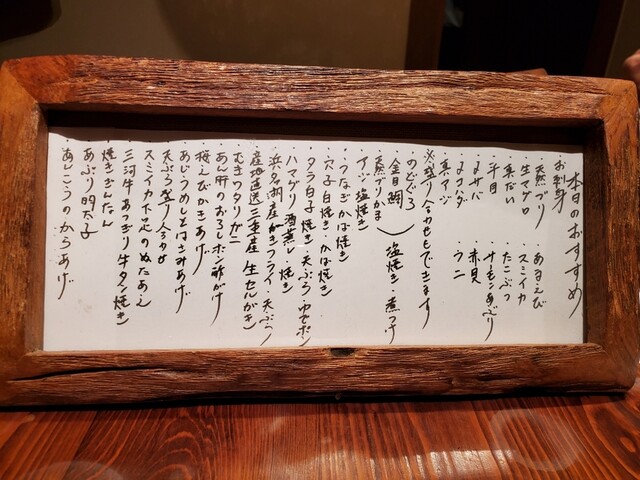 本日のおすすめ
お刺身
・天然ブリ ・あまえび
・生マグロ ・スミイカ
・真だい ・たこぶつ
・平目 ・サーモンあぶり
・〆サバ ・赤貝
・〆コハダ ・ウニ
・真アジ
※盛り合わせもできます
・のどぐろ
・金目鯛 塩焼き・煮つけ
・天然ブリかま
・アジ塩焼き
・うなぎかば焼き
・穴子白焼き・かば焼き
・タラ白子 焼き・天ぷら・ポン
・ハマグリ 酒蒸し・焼き
・浜名湖産かきフライ・天ぷら
・産地直送三重産 生セルがき
・むきワタリガニ
・あん肝のおろしポン酢がけ
・桜えびかきあげ
・あじうめしそはさみあげ
・天ぷら盛り合わせ
・スミイカ下足のぬたあえ
・三河牛あつぎり牛タン焼き
・焼きぎんなん
・あぶり明太子
・あんこうのからあげ